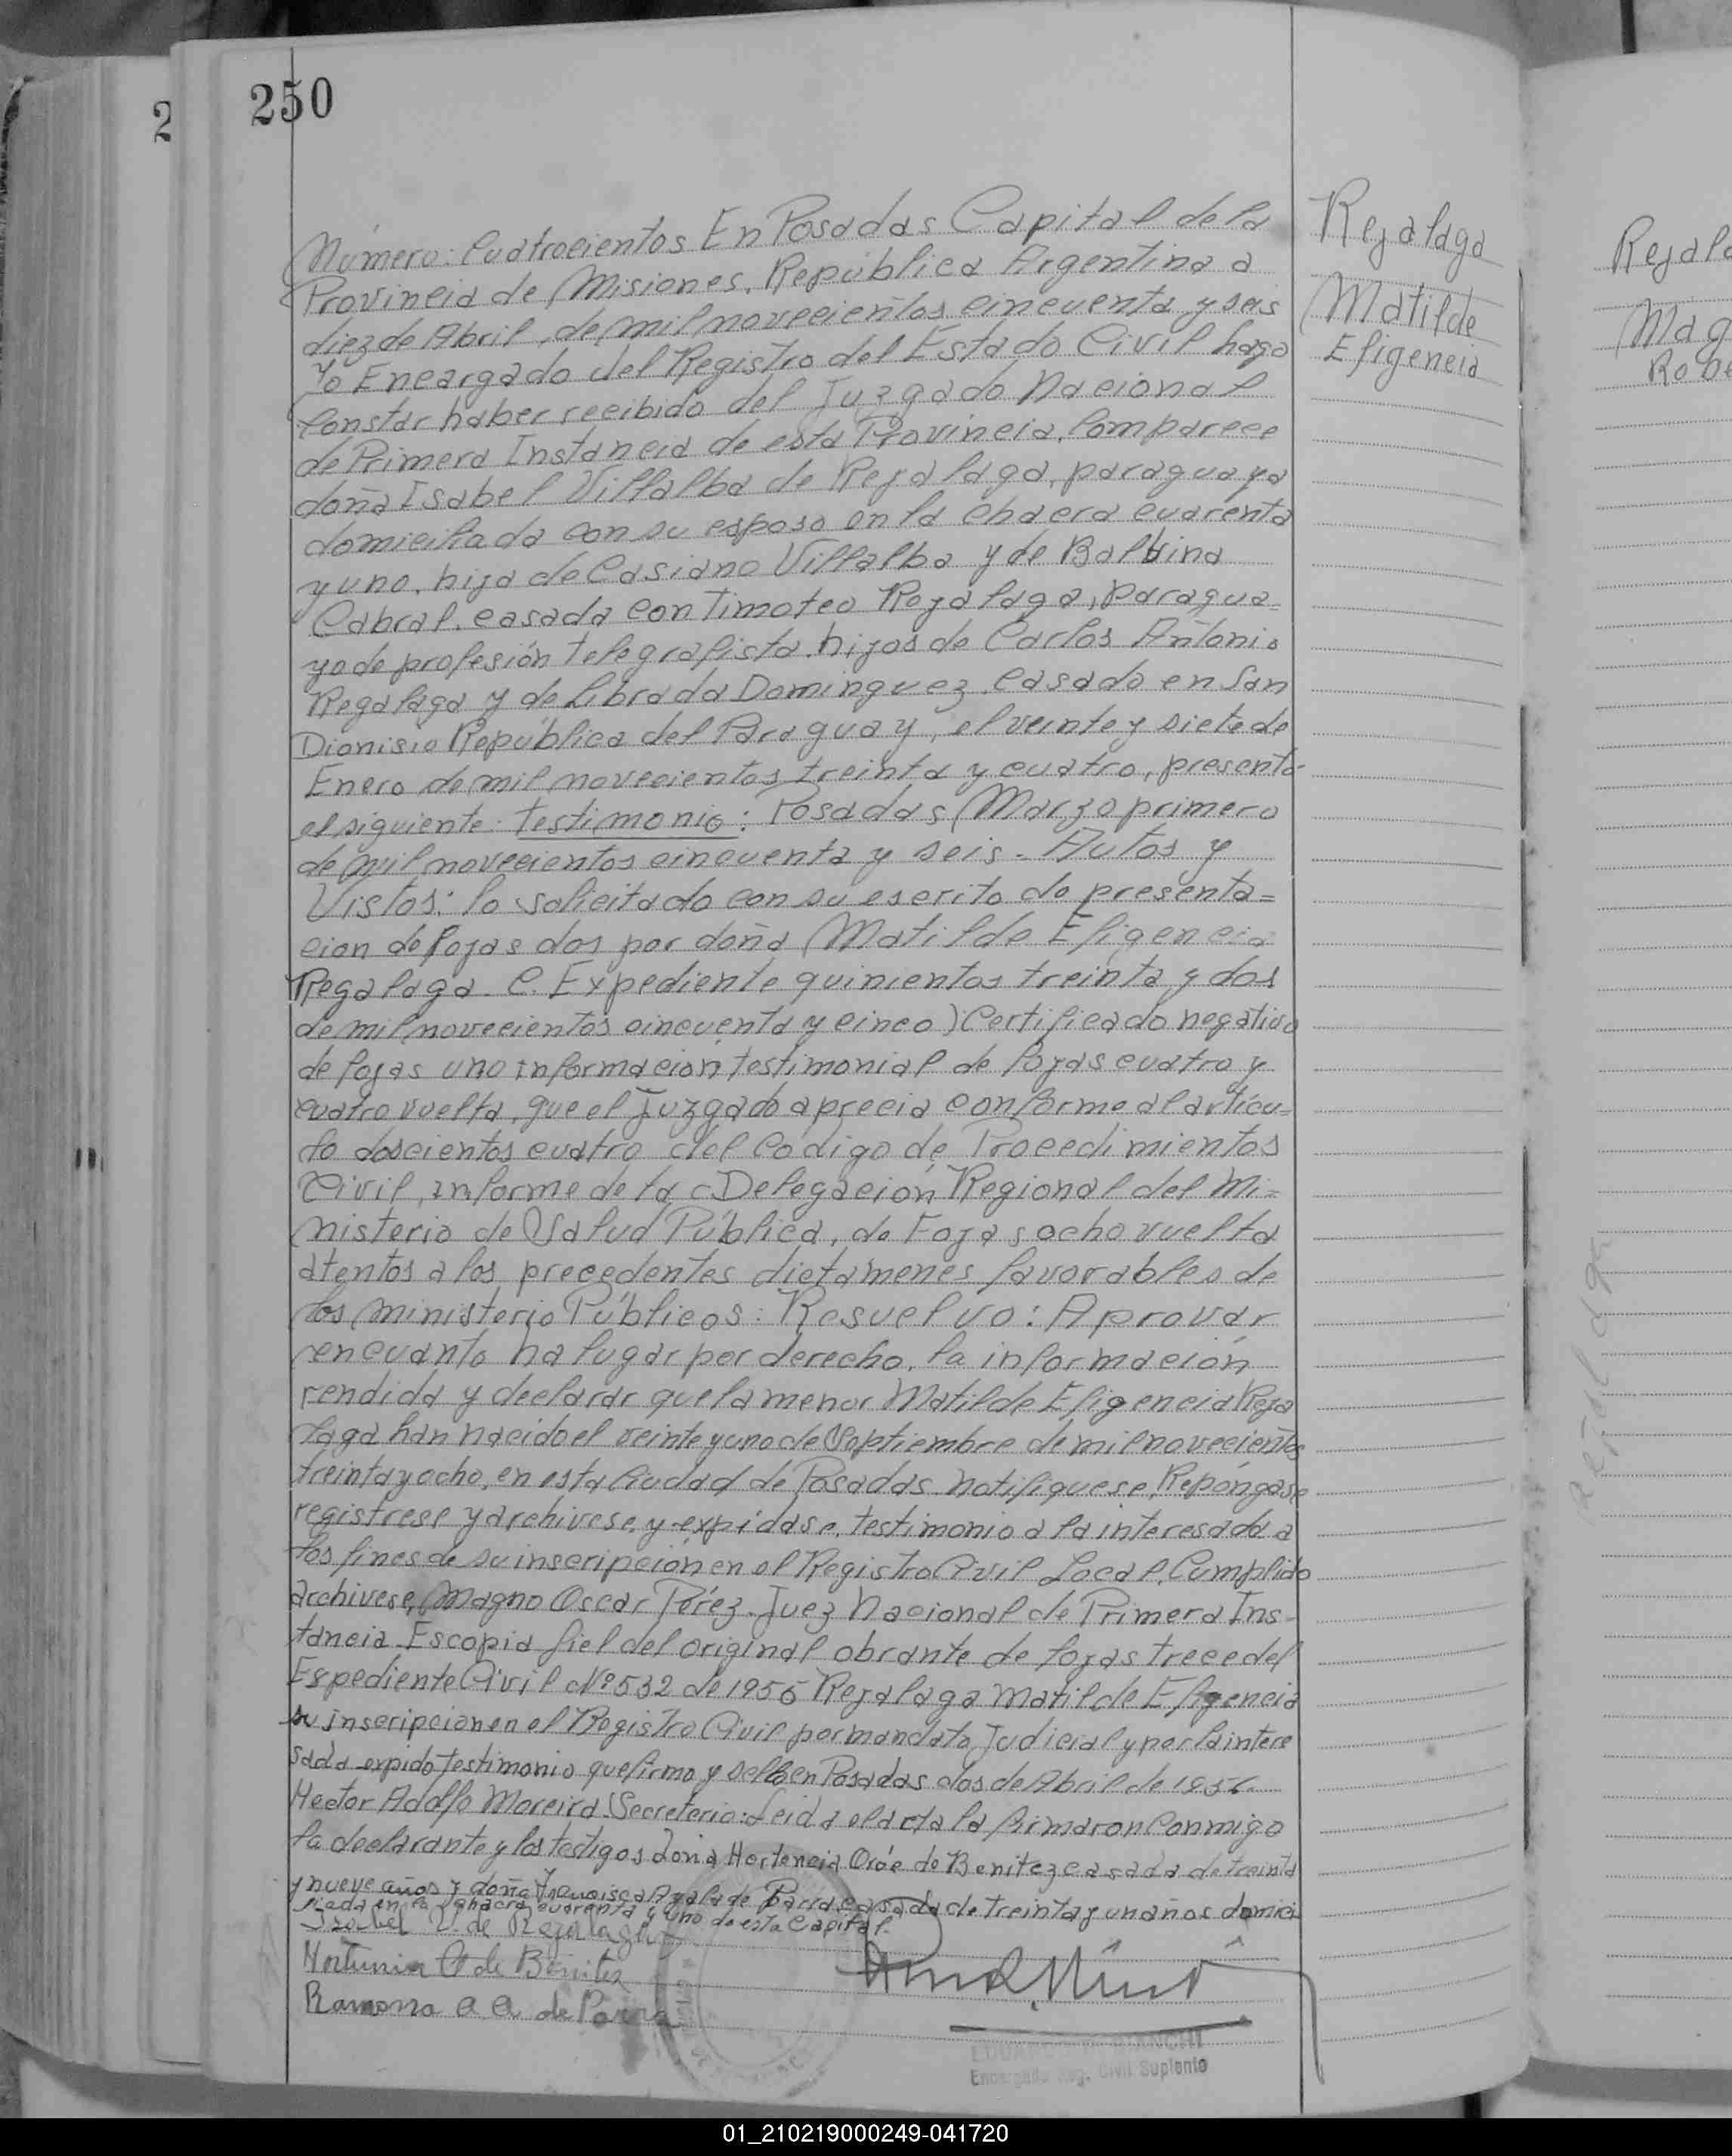 250
2
Número: Cuatrocientos En Posadas Capital de la
Provincia de Misiones. República Argentina a
diez de Abril, de mil novecientos cincuenta y seis
Yo Encargado del Registro del Estado Civil hago
Constar haber recibido del Juzgado Nacional
de Primera Instancia de esta Provincia. Comparece
doña Isabel Villalba de Rejalaga, paraguaya
domiciliada con su esposo en la chacra cuarenta
y uno, hija de Casiano Villalba y de Balbina
Cabral. casada con Timoteo Rejalaga, paragua-
yo de profesión telegrafista. hijos de Carlos Antonio
Regalaga y de Librada Dominguez. Casado en San
Dionisio República del Paraguay, el veinte y siete de
Enero de mil novecientos treinta y cuatro, presentó
el siguiente. Testimonio: Posadas Marzo primero
de mil novecientos cincuenta y seis. Autos y
Vistos: lo solicitado con su escrito de presenta=
cion de fojas dos por doña Matilde Efigencia
Regalaga. C. Expediente quinientos treinta y dos
de mil novecientos cincuenta y cinco) Certificado negativo
de fojas uno informacion testimonial de fojas cuatro y
cuatro vuelta, que el Juzgado aprecia conforme al artícu-
lo doscientos cuatro del Código de Procedimientos
Civil, informe de la Delegación Regional del Mi=
nisterio de Salud Pública, de Fojas ocho vuelta
atentos a los precedentes dictamenes favorables de
los ministerio Públicos: Resuelvo: Aprovar
en cuanto ha lugar por derecho, la información
rendida y declarar que la menor Matilde Efigencia Reja
laga han nacido el veinte y uno de Septiembre de mil novecientos
treinta y ocho, en esta Ciudad de Posadas. Notifiquese, Repóngase
registrese y archivese, y expídase, testimonio a la interesada a
los fines de su inscripción en el Registro Civil Local. Cumplido
archivese, Magno Oscar Pérez. Juez Nacional de Primera Ins-
tancia Escopia fiel del original obrante de fojas trece del
Espediente Civil Nº 532 de 1955 Rejalaga Matilde Efigencia
su inscripcion en el Registro Civil por mandato Judicial y por la intere
sada expido testimonio que firmo y sello en Posadas dos de Abril de 1956.
Hector Adolfo Moreira. Secretario: Leida el acta la firmaron Conmigo
la declarante y los testigos Doña Hortencia de Benitez casada de treinta
y nueve años y doña Francisca Ayala de Parra casada de treinta y un años domici
liada en la chacra cuarenta y uno de esta Capital.
Isabel V. de Rejalaga
de Benitez
Ramona a a de Parra
Encargado Reg. Civil Suplente
Rejalaga
Matilde
Efigencia
Rejala
Mag
Robe
01_210219000249-041720